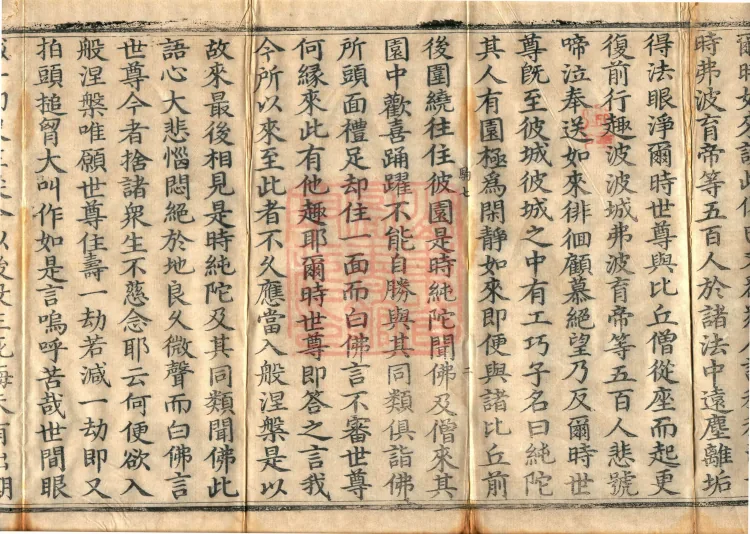 時弗波育帝等五百人於諸法中遠塵離垢
得法眼淨爾時世尊與比丘僧從座而起更
復前行趣波波城弗波育帝等五百人悲號
啼泣奉送如來徘徊顧慕絕望乃反爾時世
尊旣至彼城彼城之中有工巧子名曰純陀
其人有園極爲閑靜如來即便與諸比丘前
後圍繞往住彼園是時純陀聞佛及僧來其
園中歡喜踊躍不能自勝與其同類俱詣佛
所頭面禮足却住一面而白佛言不審世尊
何緣來此有他趣耶爾時世尊即答之言我
今所以來至此者不久應當入般涅槃是以
故來最後相見是時純陀及其同類聞佛此
語心大悲惱悶絕於地良久微聲而白佛言
世尊今者捨諸衆生不慈念耶云何便欲入
般涅槃唯願世尊住壽一劫若減一劫即又
拍頭搥胷大叫作如是言嗚呼苦哉世間眼